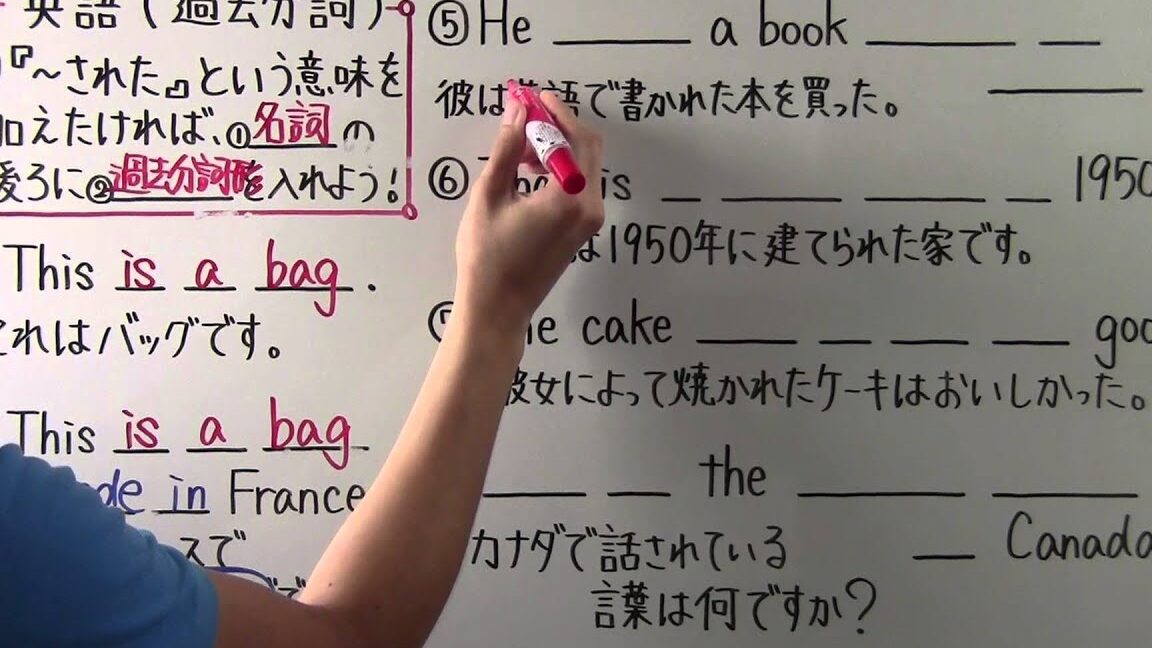 英語(過去分詞)
『～された』という意味を
加えたければ、①名詞の
後ろに②過去分詞形を入れよう!
This is a bag.
これはバッグです。
This is a bag
in France
スで
⑤He ____ a book ____ __
彼は 語で書かれた本を買った。
⑥ is __ ____ ____ __ 1950
は1950年に建てられた家です。
cake ____ __ ___ ___
彼女によって焼かれたケーキはおいしかった。
____ __ the ____ ____
__ Canada
カナダで話されている
言葉は何ですか?